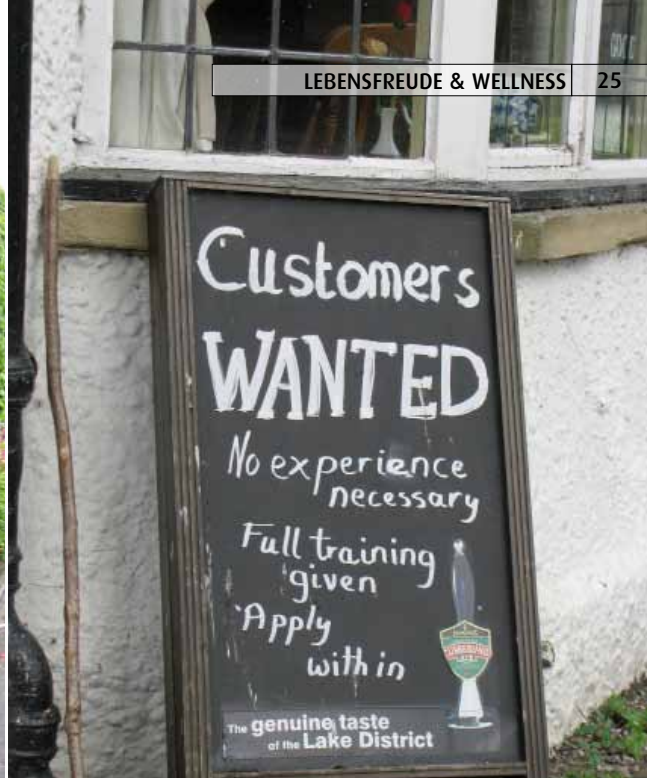 LEBENSFREUDE & WELLNESS 25
Customers
WANTED
No experience
necessary
Full training
given
Apply
within
The genuine taste
of the Lake District